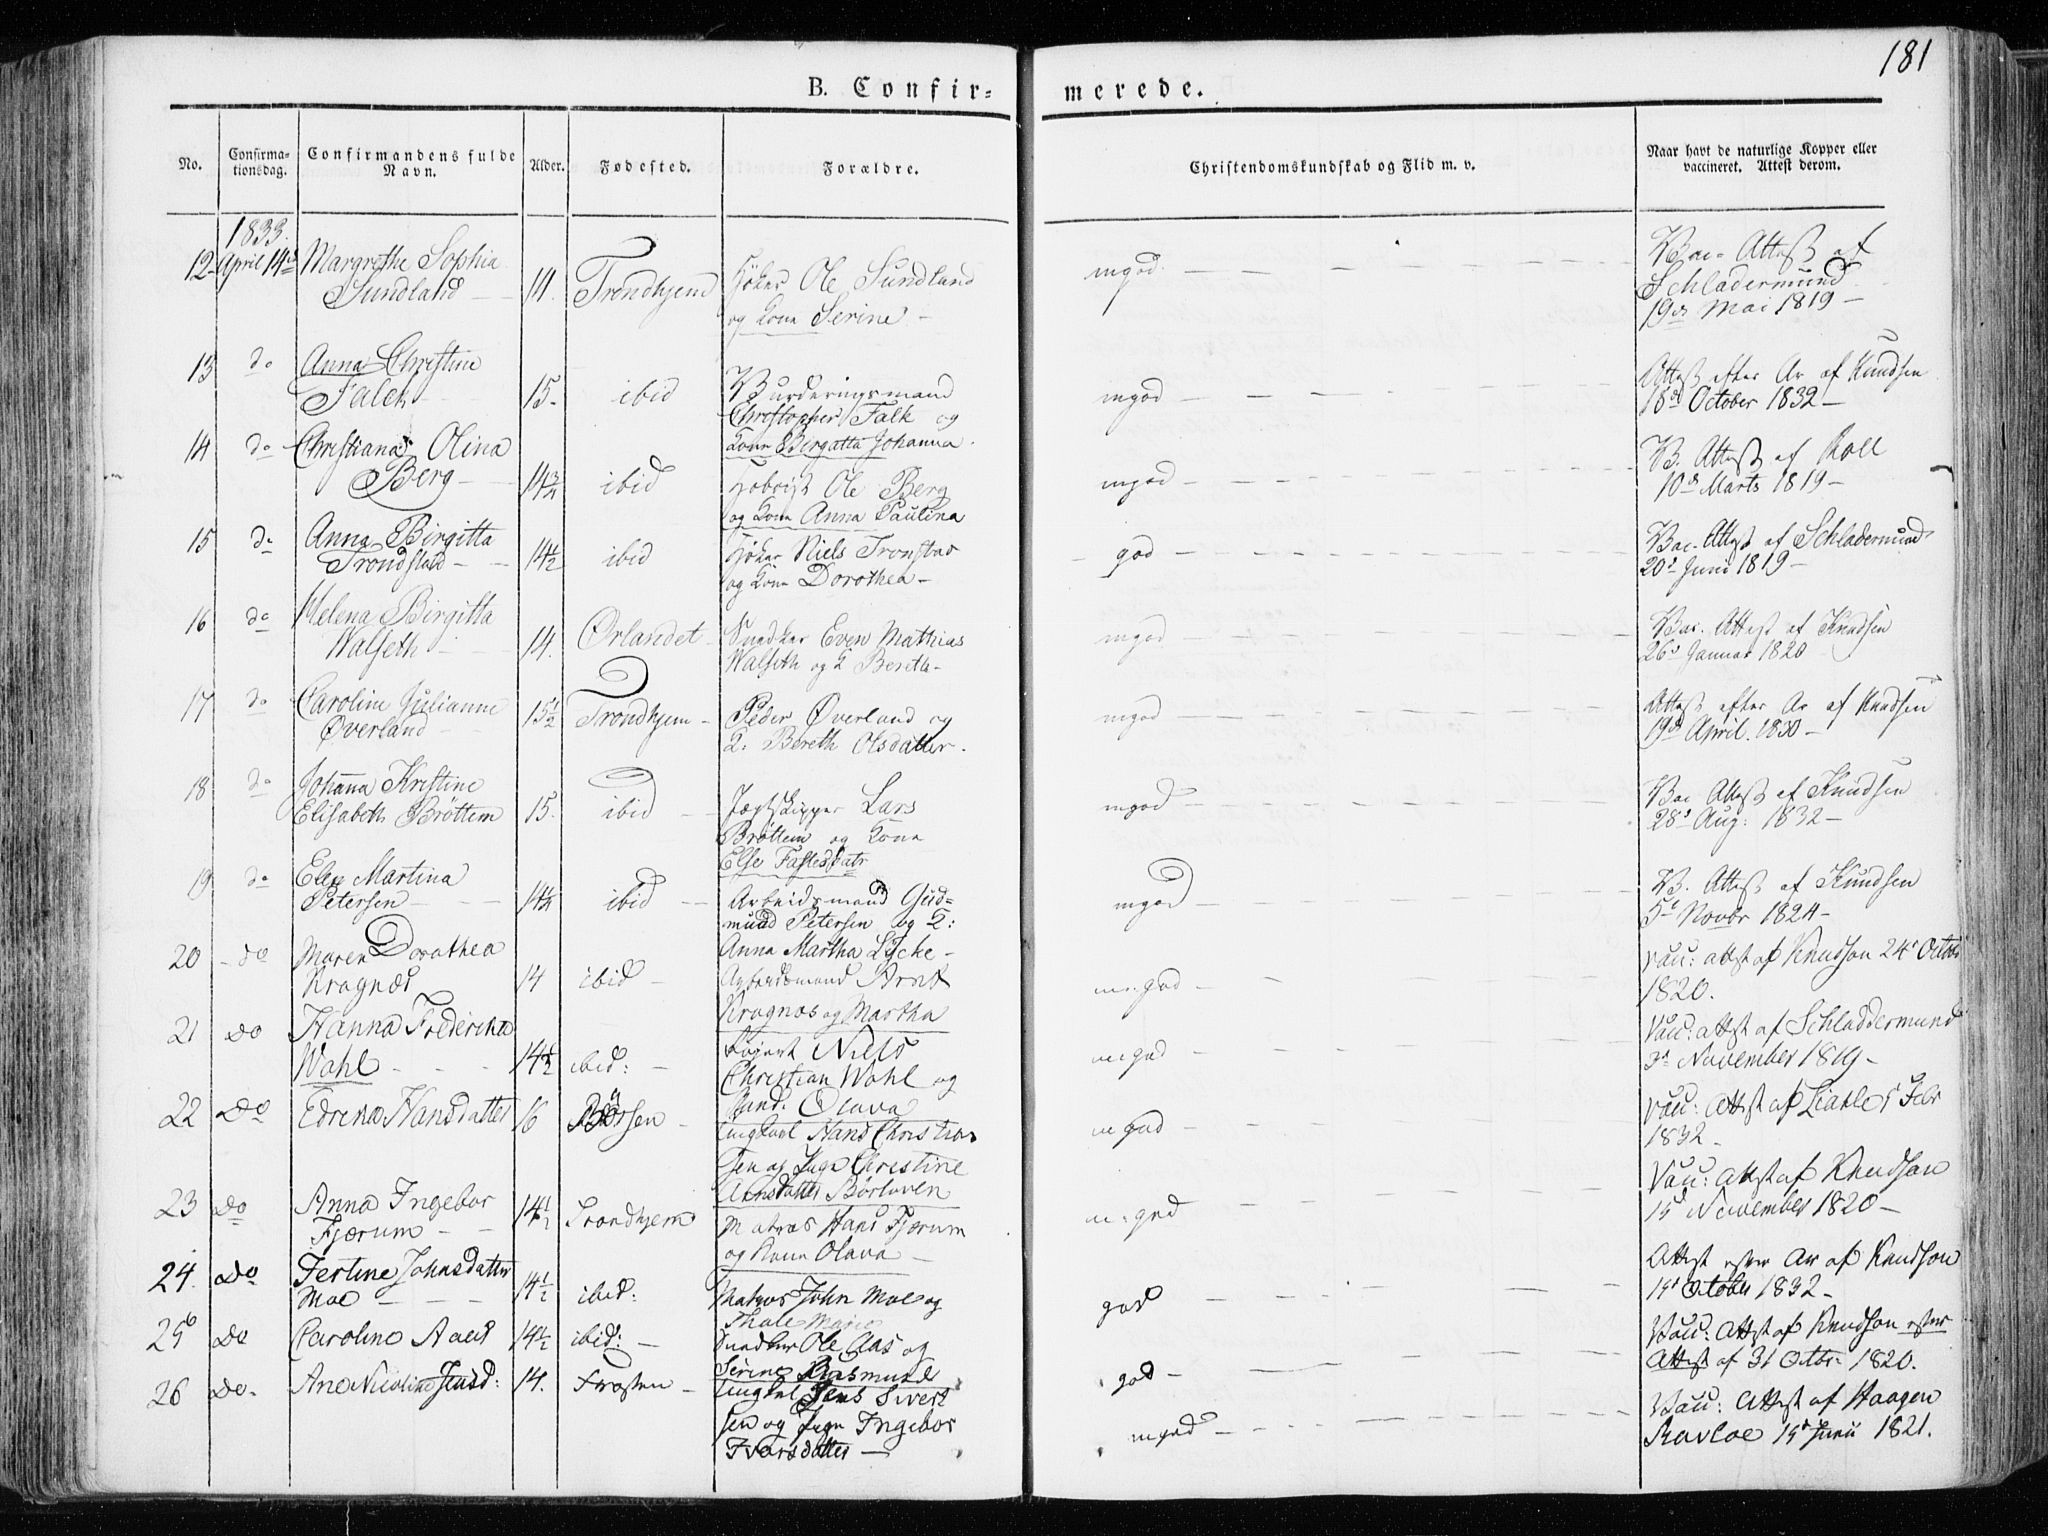 181
B. Confir-
merede.
No.
Confirma-
tionsdag.
Confirmandens fulde
Navn.
Alder.
Fødested.
Forældre.
Christendomskundskab og Flid m. v.
Naar havt de naturlige Kopper eller
vaccineret. Attest derom.
1833.
12 April 14de Margrethe Sophia
Sundland 14. Trondhjem Høker Ole Sundland
og Kone Serine
mgod
Vac. Attest af
Schladermund
19de Mai 1819
13 do Anna Christine
Falck 15. ibid Vurderingsmand
Christopher Falk og
Kone Birgatta Johanna
mgod
Attest efter Ar af Knudsen
18de October 1832
14 do Christiana Olina
Berg 14 3/4 ibid Ole Berg
og Kone Anna Paulina
mgod
V. Attest af Roll
10de Marts 1819
15 do Anna Birgitta
Trondstad 14 1/2 ibid Høker Niels Tronstad
og Kone Dorothea
god
Vac. Attest af Schladermund
20de Juni 1819
16 do Helena Birgitta
Walseth 14. Ørlandet Snedker Even Mathias
Walseth og K Bereth
mgod
Vac. Attest af Knudsen
26de Januar 1820
17 do Caroline Julianne
Øverland 15 1/2 Trondhjem Peder Øverland og
K: Bereth Olsdatter
mgod
Attest efter Ar af Knudsen
19de April 1830
18 do Johanna Kristine
Elisabeth Bröttem 15. ibid Jægtskipper Lars
Bröttem og Kone
Else Fastesdatr
mgod
Vac Attest af Knudsen
28de Aug: 1832
19 do Elen Martina
Petersen ibid Arbeidsmand Gud-
mund Petersen og K:
Anna Martha Lÿcke
mgod
V. Attest af Knudsen
5te Novbr 1824
20 do Maren Dorothea
Kragnæs 14 ibid Arbeidsmand Arnt
Kragnæs og Martha
m.god
Vacc: attest af Knudson 24de Octbr
1820.
21 Do Hanna Frederikke
Wahl 14 1/2 ibid: Niels
Christian Wahl og
Olava
m god
Vacc: attest af Schladdermund
3de November 1819
22 Do Edrena Hansdatter 16 Börsen Ungkarl Hans Christian
sen og Pige Christine
Arnsdatter Börloven
m god
Vacc: Attest af Febr
1832
23 Do Anna Ingebor
Fjærum 14 1/2 Trondhjem Matros Hans Fjærum
og Kone Olava
m: god
Vacc: Attest af Knudson
15de November 1820
24. Do Fertine Johnsdatter
Moe 14 1/2 ibid: Matros John Moe og
Thale Marie
god
Attest efter Ar af Knudson
15de Octobr 1832
25 Do Caroline Aas 14 1/2 ibid: Ole Aas og
Serine Rasmusd
god
Vacc: Attest af Knudson efter
Attest af 31 Octbr 1820.
26 Do. Ane Nicoline Jensd: 14. Frosten Ungkal Jens Sivert
sen og Pige Ingebor
Ivarsdatter
mgod
Vacc: Attest af Haagen
15de Junii 1821.